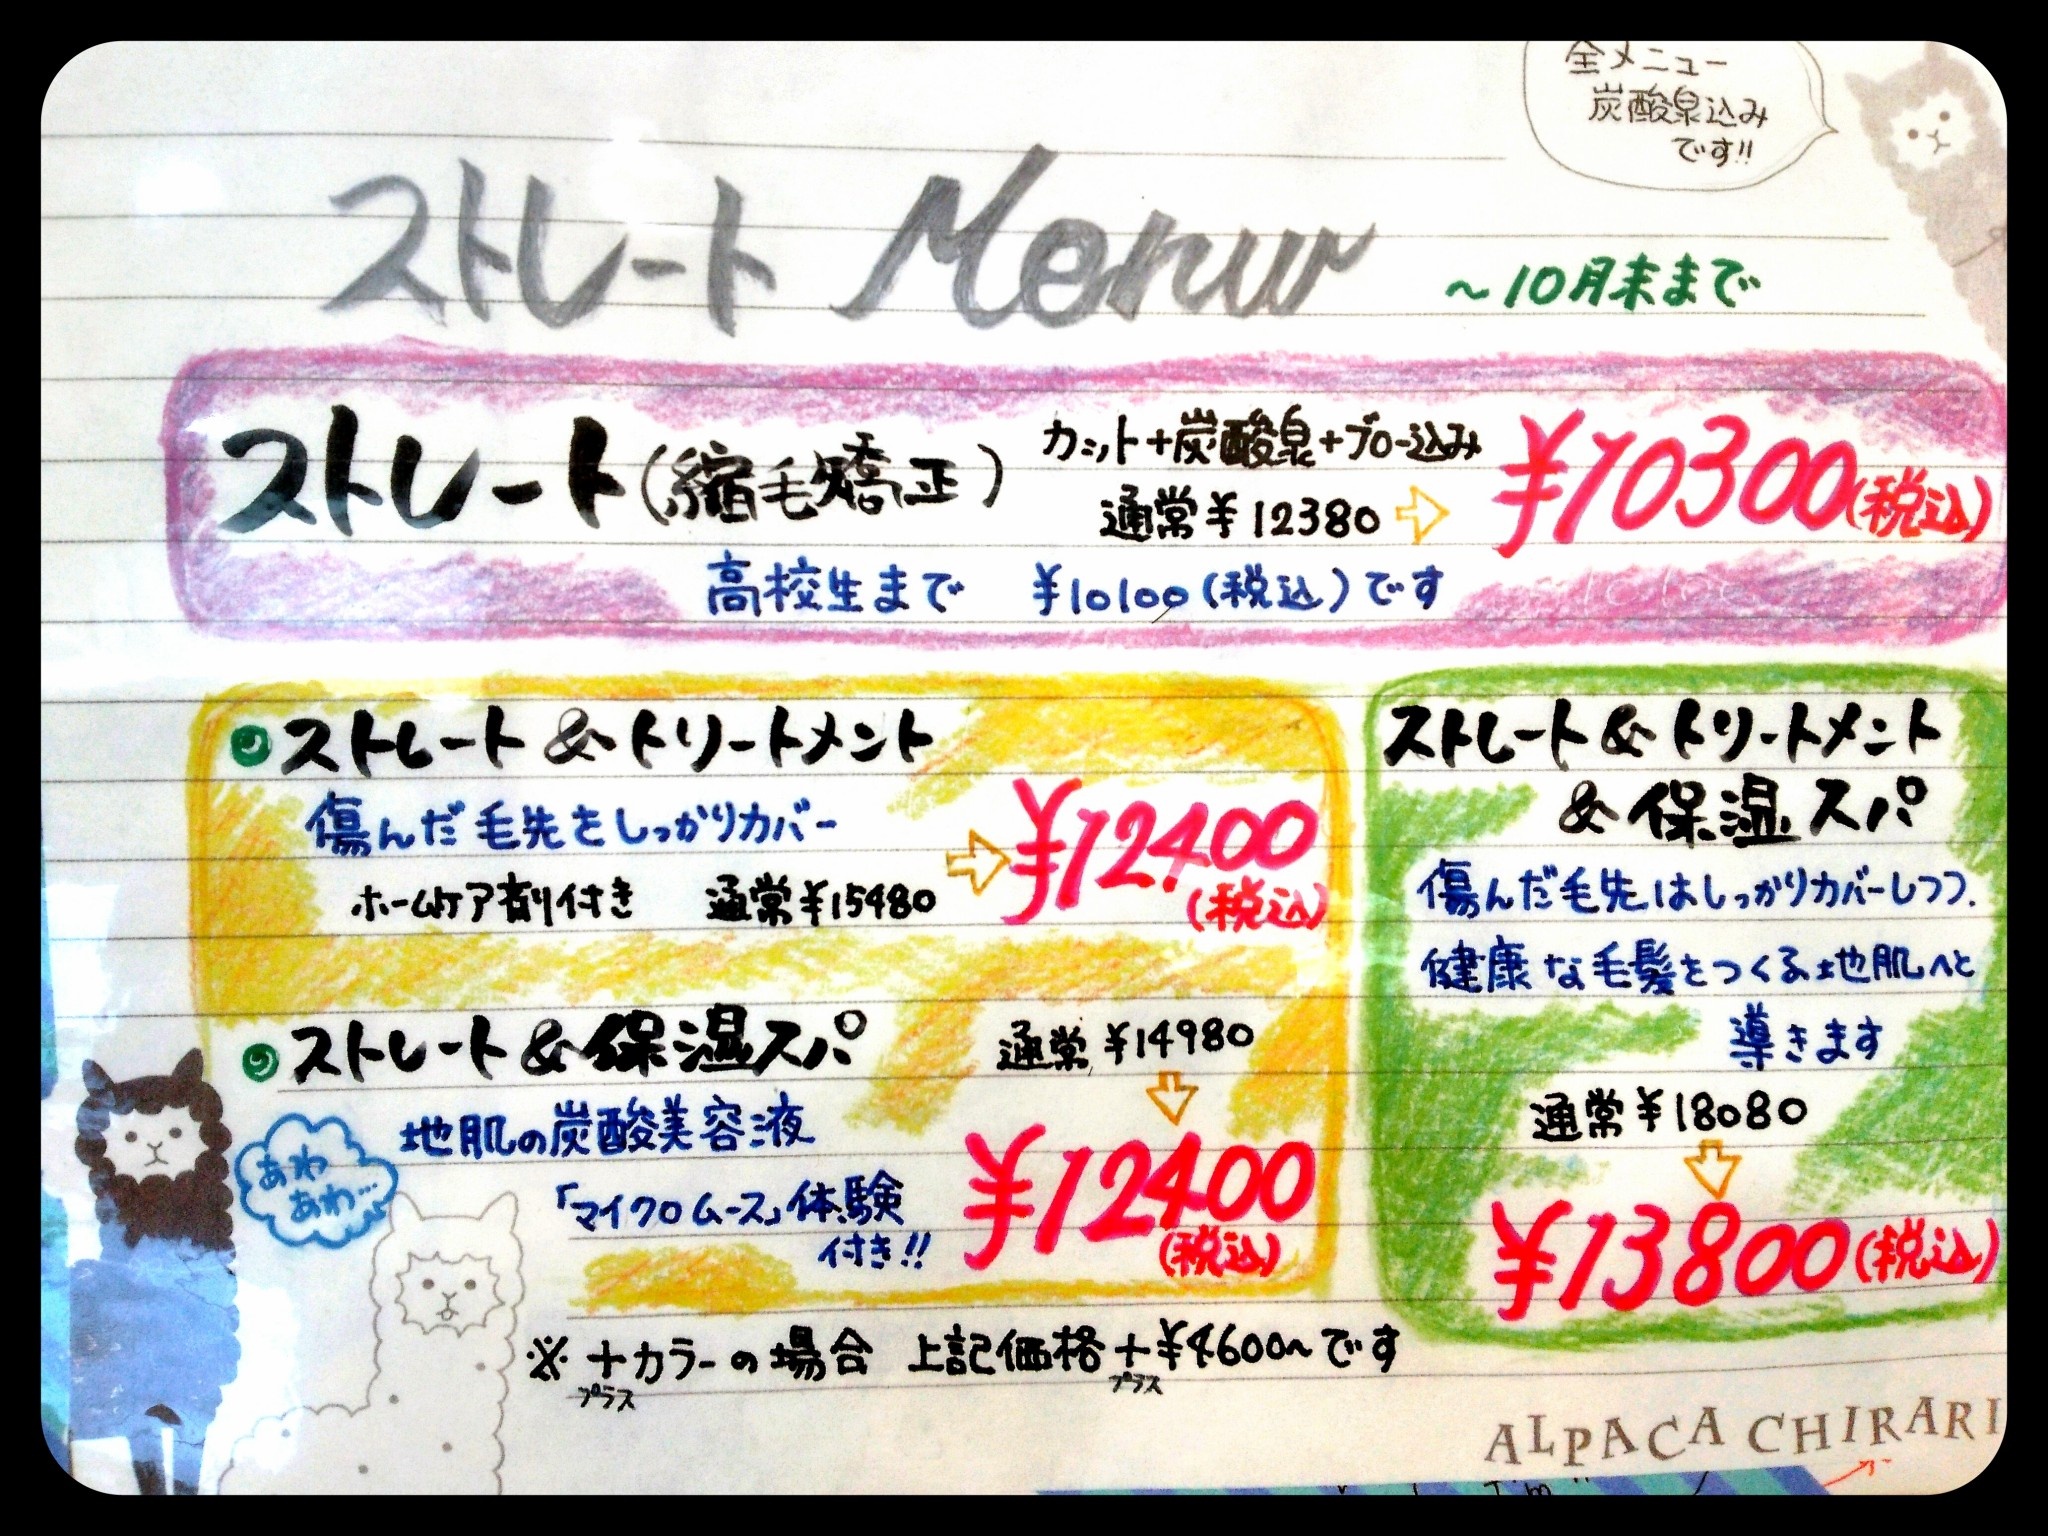 全メニュー
炭酸泉込み
です!!
ストレート Menu
～10月末まで
ストレート(縮毛矯正)
カット+炭酸泉+ブロー込み
通常¥12380
¥10300(税込)
高校生まで ¥10100(税込)です
ストレート&トリートメント
傷んだ毛先をしっかりカバー
ホームケア剤付き 通常¥15480
¥12400
(税込)
ストレート&保湿スパ
通常¥14980
地肌の炭酸美容液
「マイクロムース」体験
付き!!
¥12400
(税込)
あわ
あわ…
ストレート&トリートメント
&保湿スパ
傷んだ毛先はしっかりカバーしつつ、
健康な毛髪をつくる地肌へと
導きます
通常¥18080
¥13800(税込)
※+カラーの場合 上記価格+¥4600～です
プラス プラス
ALPACA CHIRARI